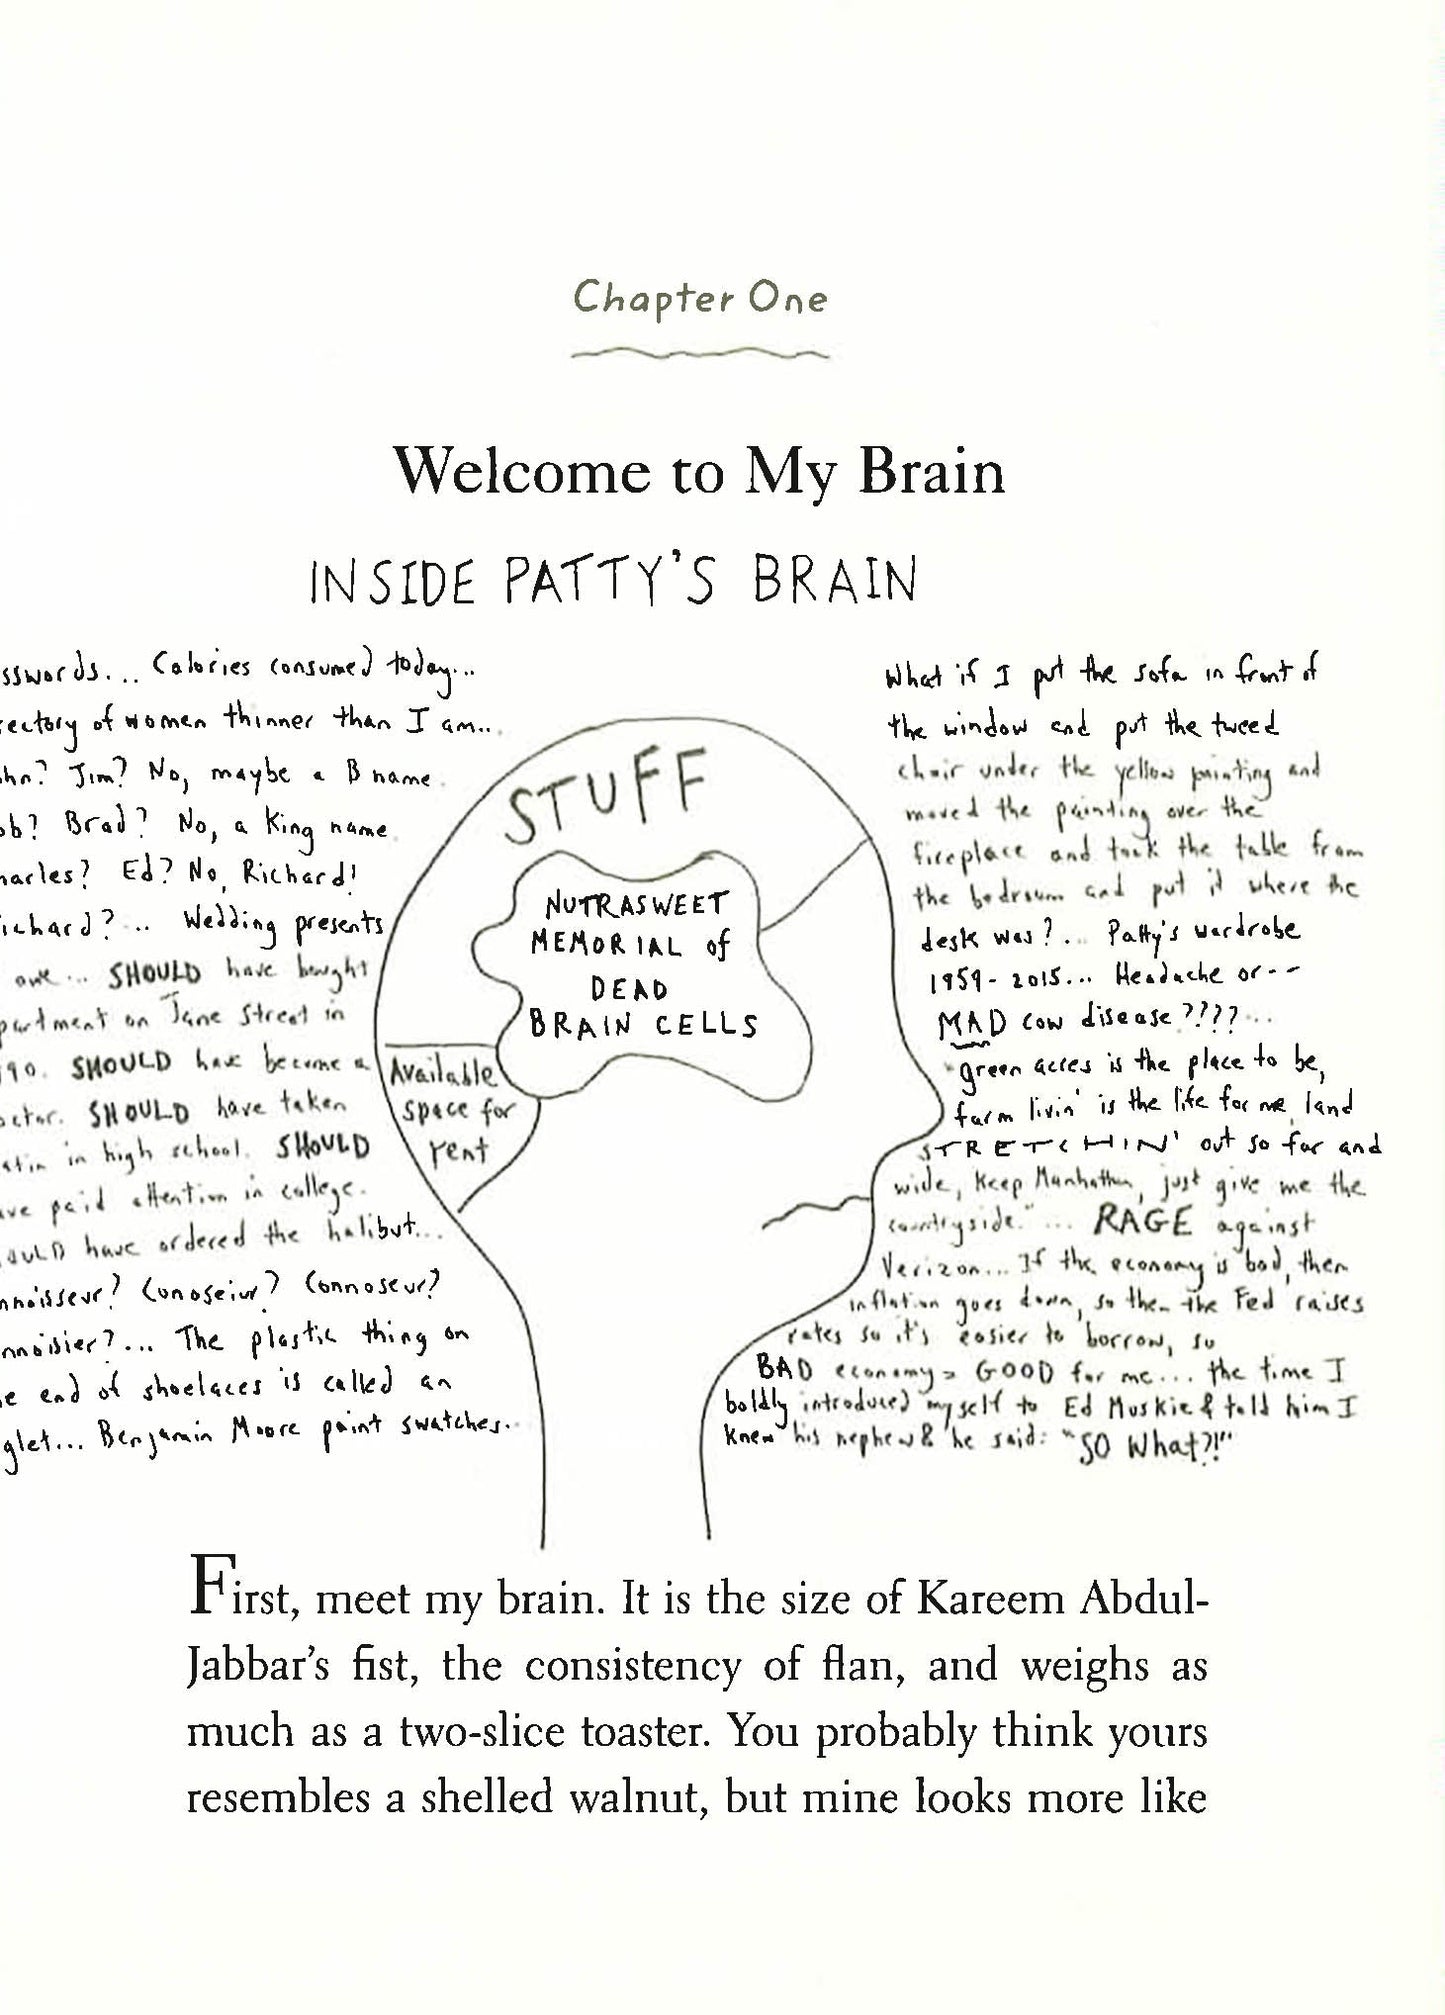 Chapter One
Welcome to My Brain
INSIDE PATTY'S BRAIN
sswords... Calories consumed today...
rectory of women thinner than I am...
hn? Jim? No, maybe a B name.
ob? Brad? No, a King name.
harles? Ed? No, Richard!
ichard?... Wedding presents
owe... SHOULD have bought
partment on Jane Street in
990. SHOULD have become a
octor. SHOULD have taken
atin in high school. SHOULD
ave paid attention in college.
OULD have ordered the halibut...
nnoisseur? Conoseiur? Connoseur?
nnoisier?... The plastic thing on
he end of shoelaces is called an
glet... Benjamin Moore paint swatches...
STUFF
NUTRASWEET
MEMORIAL of
DEAD
BRAIN CELLS
Available
space for
rent
What if I put the sofa in front of
the window and put the tweed
chair under the yellow painting and
moved the painting over the
fireplace and took the table from
the bedroom and put it where the
desk was?... Patty's wardrobe
1959-2015... Headache or--
MAD cow disease????...
"green acres is the place to be,
farm livin' is the life for me, land
STRETCHIN' out so far and
wide, keep Manhattan, just give me the
countryside."... RAGE against
Verizon... If the economy is bad, then
inflation goes down, so then the Fed raises
rates so it's easier to borrow, so
BAD economy = GOOD for me... the time I
boldly introduced myself to Ed Muskie & told him I
knew his nephew & he said: "SO What?!"
First, meet my brain. It is the size of Kareem Abdul-
Jabbar's fist, the consistency of flan, and weighs as
much as a two-slice toaster. You probably think yours
resembles a shelled walnut, but mine looks more like